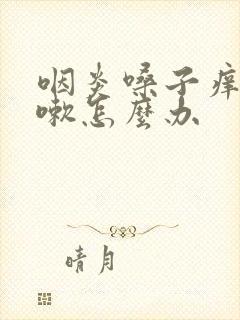 咽炎嗓子痒
嗽怎麼办
晴月